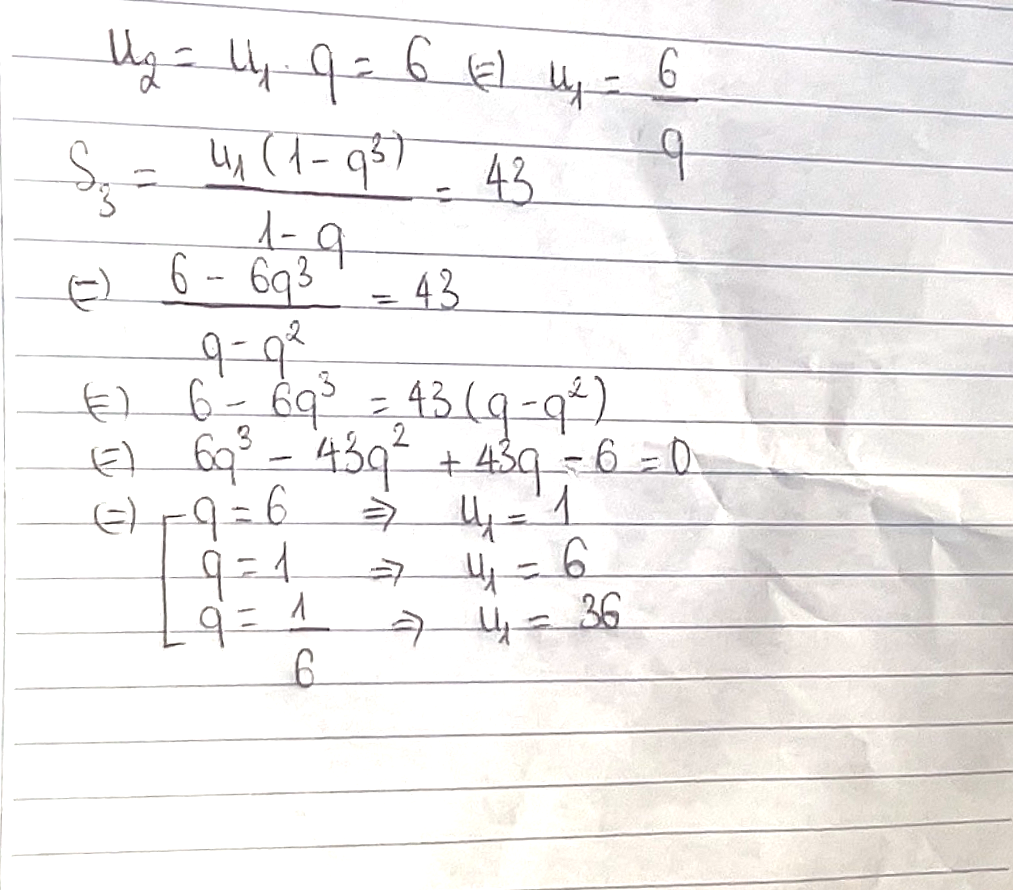 u₂ = u₁ . q = 6 (=) u₁ = 6/q
S₃ = u₁(1 - q³)/(1 - q) = 43
(=) (6 - 6q³)/(q - q²) = 43
(=) 6 - 6q³ = 43(q - q²)
(=) 6q³ - 43q² + 43q - 6 = 0
(=) [ q = 6 ⇒ u₁ = 1
q = 1 ⇒ u₁ = 6
q = 1/6 ⇒ u₁ = 36